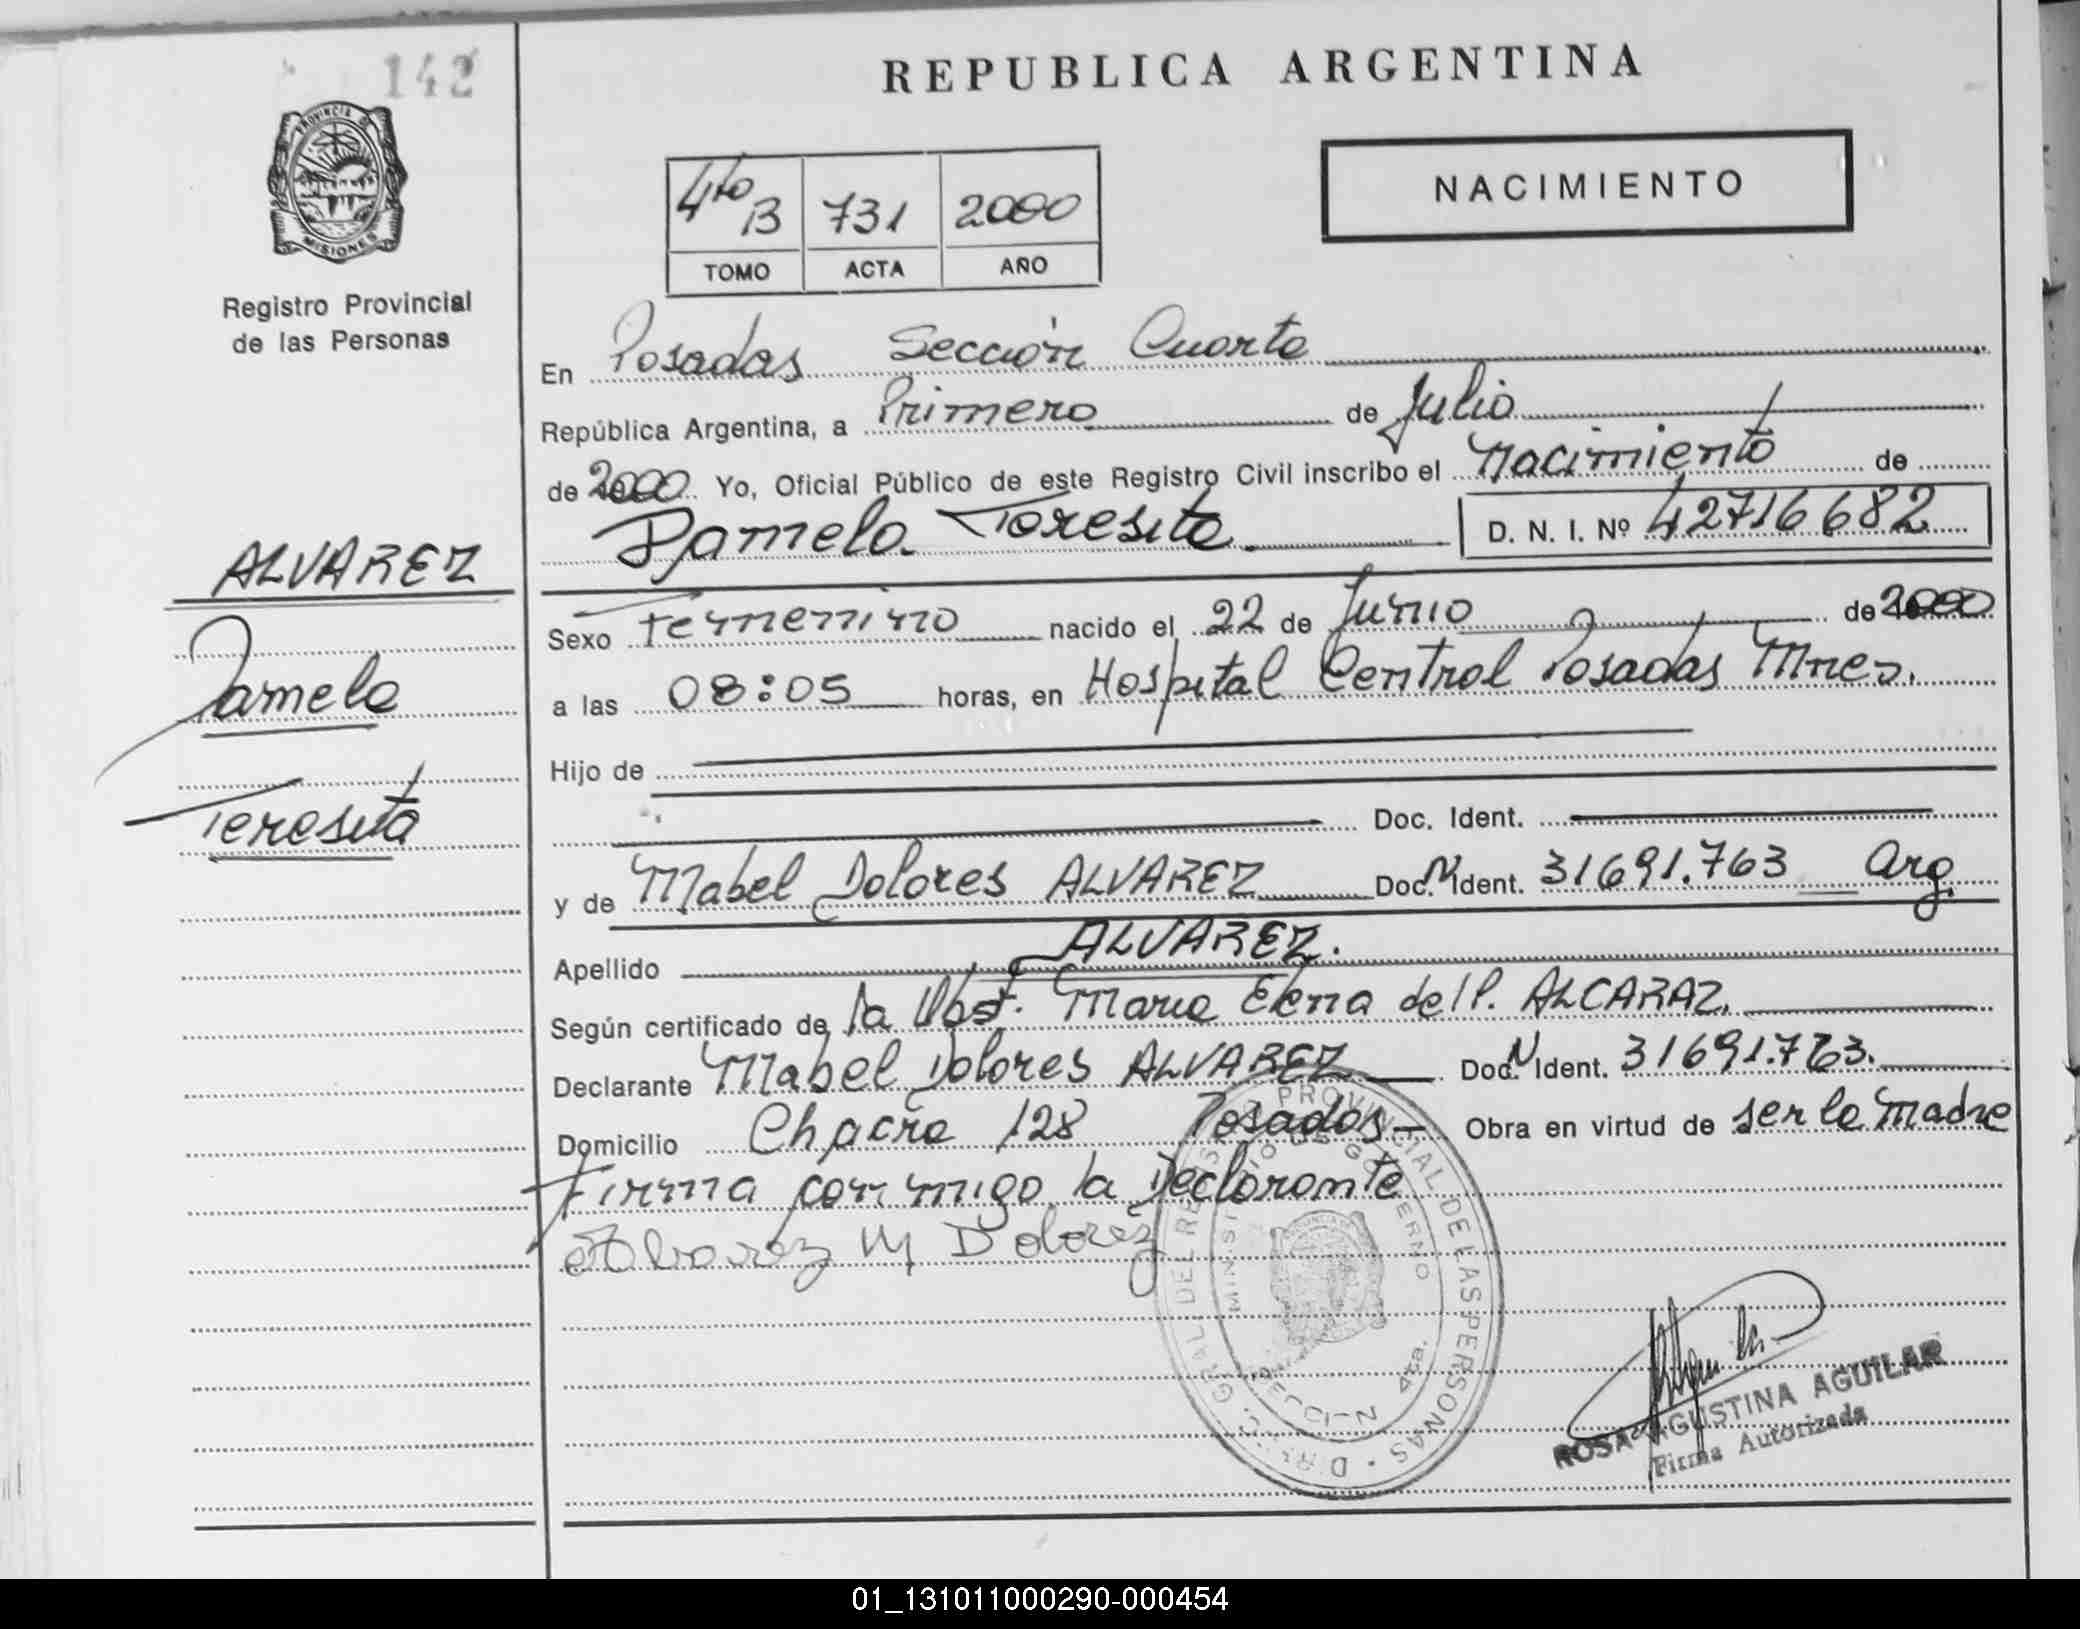 142
REPUBLICA ARGENTINA
PROVINCIA DE
MISIONES
Registro Provincial
de las Personas
4to B 731 2000
TOMO ACTA AÑO
NACIMIENTO
En Posadas Sección Cuarta
República Argentina, a Primero de Julio
de 2000 Yo, Oficial Público de este Registro Civil inscribo el Nacimiento de
Pamela Teresita D. N. I. Nº 42716682
ALVAREZ
Pamela
Teresita
Sexo Femenino nacido el 22 de Junio de 2000
a las 08:05 horas, en Hospital Central Posadas Mnes.
Hijo de
Doc. Ident.
y de Mabel Dolores ALVAREZ Doc. N Ident. 31691.763 Arg.
Apellido ALVAREZ.
Según certificado de la Obst. Maria Elena del P. ALCARAZ.
Declarante Mabel Dolores ALVAREZ Doc. N Ident. 31691.763.
Domicilio Chacra 128 Posadas Obra en virtud de ser la madre
Firma conmigo la Declarante
Alvarez M Dolorez
DIREC. GRAL. DEL REGISTRO PROVINCIAL DE LAS PERSONAS
MINISTERIO DE GOBIERNO
SECCION 4ta.
ROSA AGUSTINA AGUILAR
Firma Autorizada
01_131011000290-000454